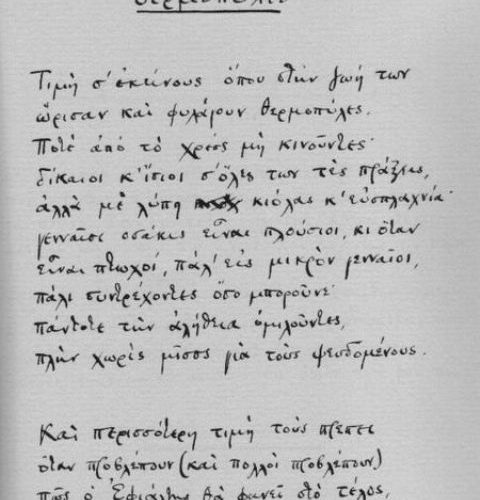 Θερμοπύλες
Τιμή σ' ἐκείνους ὅπου στήν ζωή των
ὥρισαν καί φυλάγουν Θερμοπύλες.
Ποτέ ἀπό τό χρέος μή κινοῦντες·
δίκαιοι κ' ἴσιοι σ' ὅλες των τές πράξεις,
ἀλλά μέ λύπη κιόλας κ' εὐσπλαχνία·
γενναῖοι ὁσάκις εἶναι πλούσιοι, κι ὅταν
εἶναι πτωχοί, πάλ' εἰς μικρόν γενναῖοι,
πάλι συντρέχοντες ὅσο μποροῦνε·
πάντοτε τήν ἀλήθεια ὁμιλοῦντες,
πλήν χωρίς μῖσος γιά τούς ψευδομένους.
Καί περισσότερη τιμή τούς πρέπει
ὅταν προβλέπουν (καί πολλοί προβλέπουν)
πῶς ὁ Ἐφιάλτης θά φανεῖ στό τέλος,